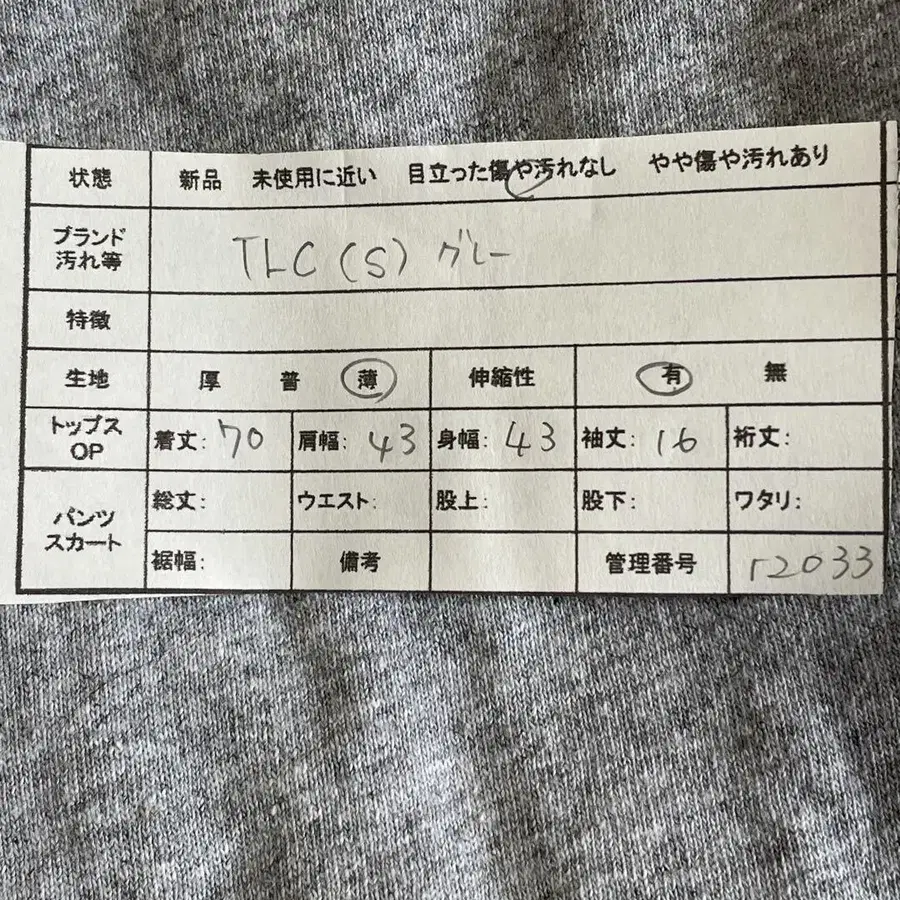 状態 新品 未使用に近い 目立った傷や汚れなし やや傷や汚れあり
ブランド
汚れ等
TLC (S) グレー
特徴
生地 厚 普 薄 伸縮性 有 無
トップス
OP
着丈: 70 肩幅: 43 身幅: 43 袖丈: 16 裄丈:
パンツ
スカート
総丈: ウエスト: 股上: 股下: ワタリ:
裾幅: 備考 管理番号 r2033